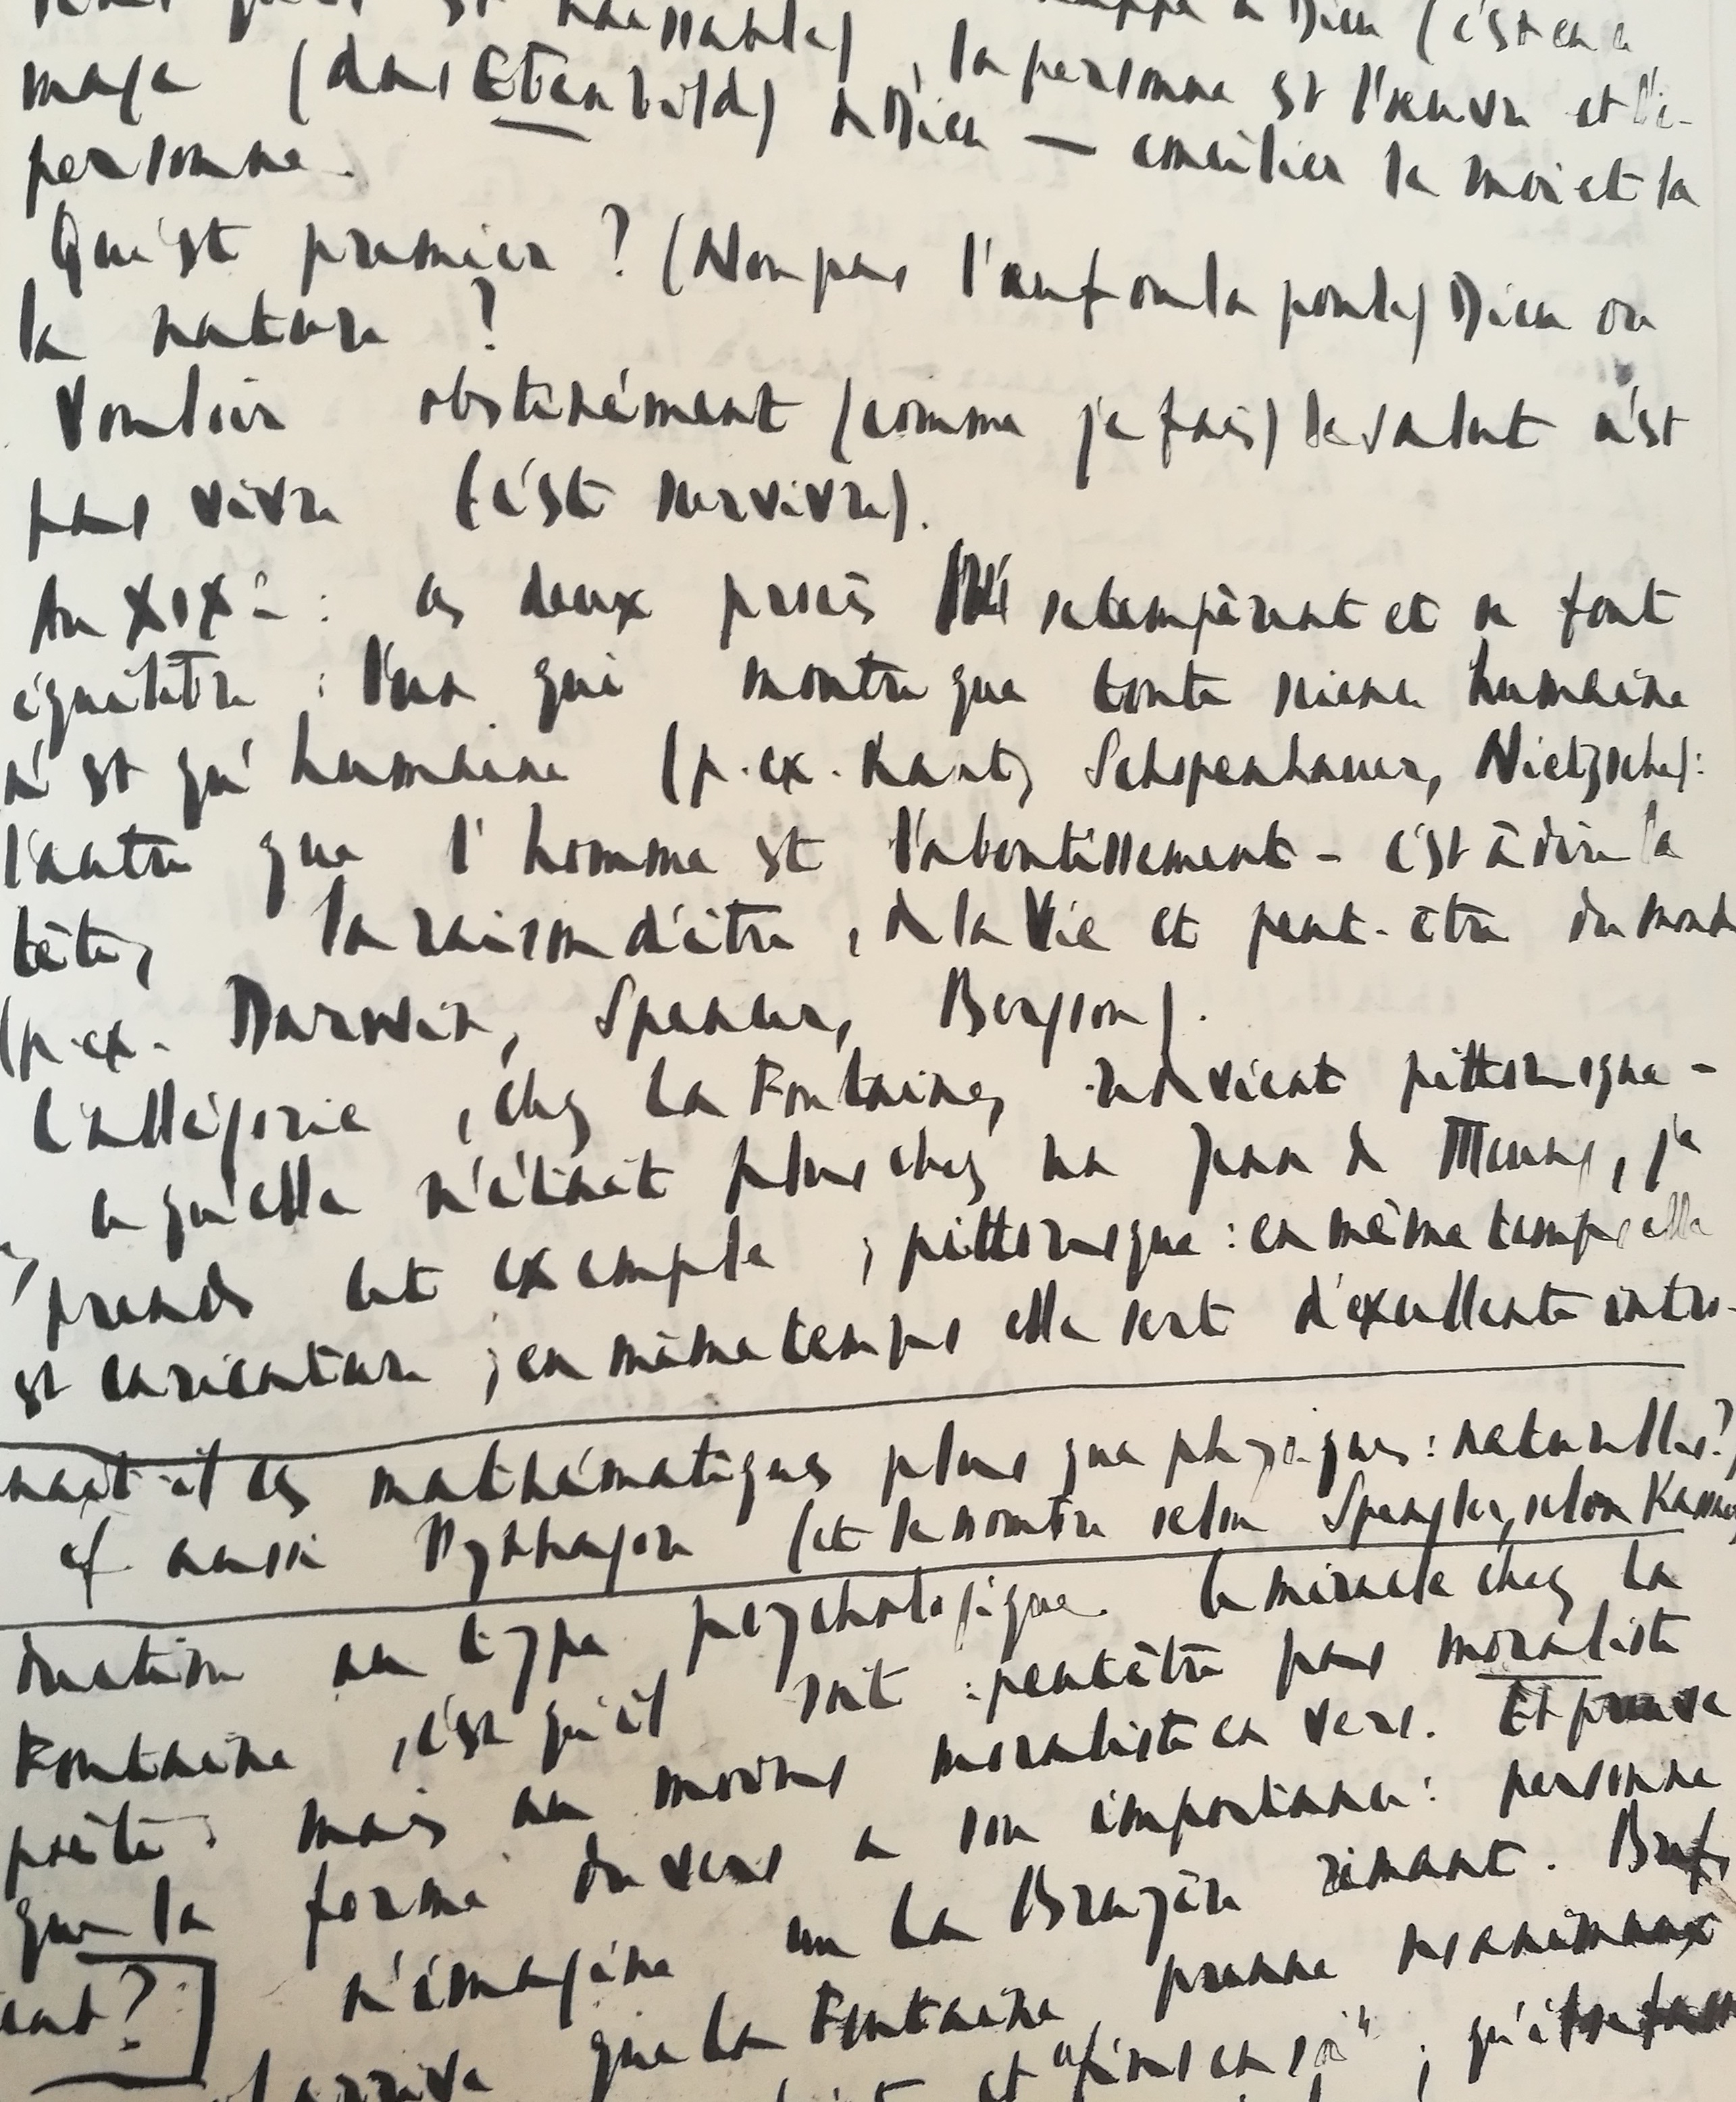 haïssable), échappe à Dieu (c'est en
image (dans Ebenbild) de Dieu — , la personne est l'œuvre et l'i-
personne. concilier le moi et la
Qui est premier ? (Non pas l'œuf ou la poule) Dieu ou
la nature ?
Vouloir obstinément (comme je fais) le salut n'est
pas vivre (c'est survivre).
Au XIXe : ces deux procès se tempèrent et se font
équilibre : l'un qui montre que toute science humaine
n'est qu'humaine (p. ex. Kant, Schopenhauer, Nietzsche) :
l'autre que l'homme est l'aboutissement - c'est à dire la
tête, la raison d'être, de la Vie et peut-être du monde
(p. ex. Darwin, Spencer, Bergson).
L'allégorie, chez La Fontaine, redevient pittoresque -
ce qu'elle n'était plus chez un Jean de Meung, je
prends cet exemple ; pittoresque : en même temps elle
est caricature ; en même temps elle sert d'excellente intro-
naît-il les mathématiques plus que physiques : naturelles ?
cf aussi Pythagore (et le nombre selon Spengler, selon Kassner
duction au type psychologique. Le miracle chez La
Fontaine, c'est qu'il soit : peut être pas moraliste
poète : mais au moins moraliste en vers. Et preuve
que la forme du vers a son importance : personne
n'imagine un La Bruyère rimant. Bref,
ent ? que La Fontaine prenne ses animaux
arrive et "fins en soi" ; qu'il